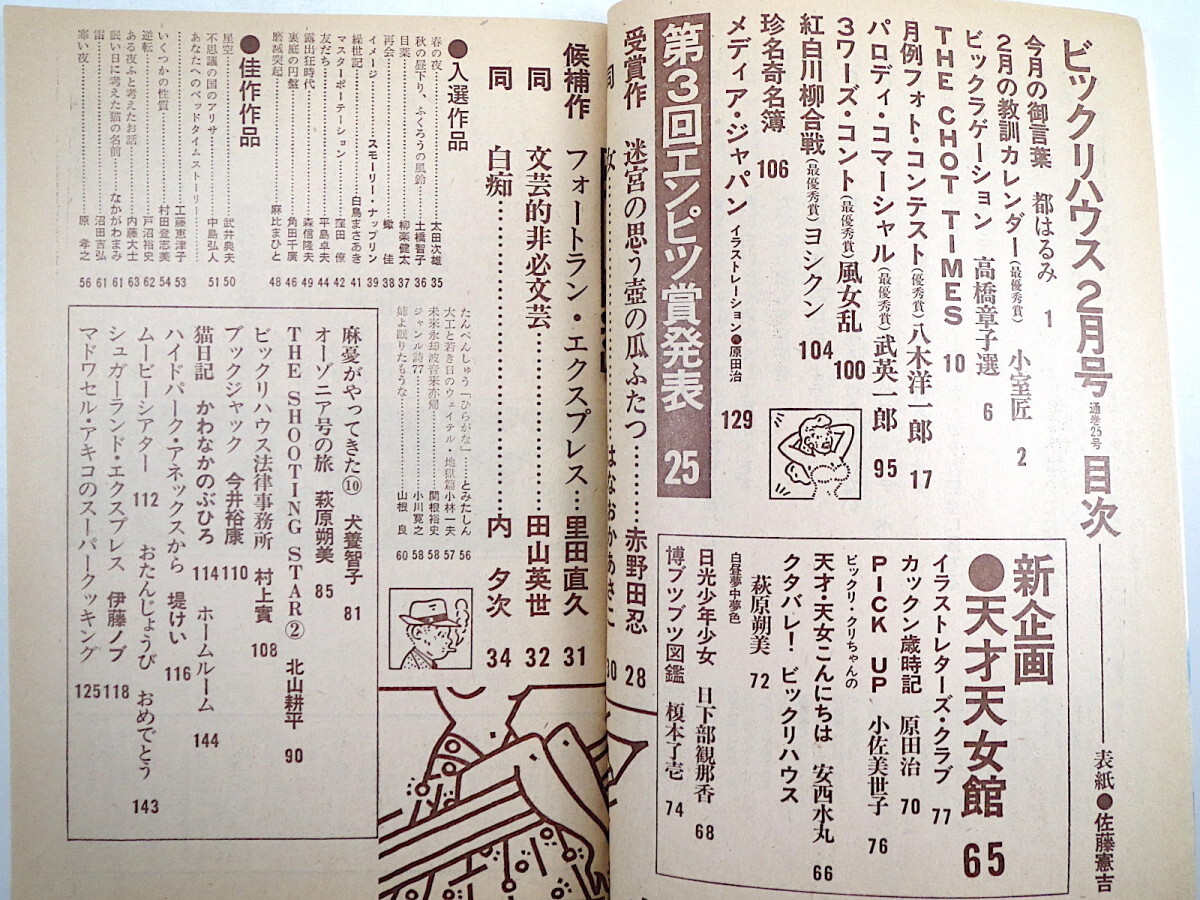 ビックリハウス2月号 通巻25号 目次
表紙●佐藤憲吉
今月の御言葉 都はるみ 1
2月の教訓カレンダー(最優秀賞) 小室匠 2
ビックラゲーション 高橋章子選 6
THE CHOT TIMES 10
月例フォト・コンテスト(優秀賞)八木洋一郎 17
パロディ・コマーシャル(最優秀賞)武英一郎 95
3ワーズ・コント(最優秀賞)風女乱 100
紅白川柳合戦(最優秀賞)ヨシクン 104
珍名奇名簿 106
メディア・ジャパン イラストレーション 原田治 129
新企画
●天才天女館 65
イラストレターズ・クラブ 77
カックン歳時記 原田治 70
PICK UP 小佐美世子 76
ビックリ・クリちゃんの
天才・天女こんにちは 安西水丸 66
クタバレ!ビックリハウス
萩原朔美 72
白昼夢中夢色
日光少年少女 日下部観那香 68
博ブツブツ図鑑 榎本了壱 74
第3回エンピツ賞発表 25
受賞作 迷宮の思う壺の瓜ふたつ……赤野田忍 28
同 女……はなおかあきこ 30
候補作 フォートラン・エクスプレス…里田直久 31
同 文芸的非必文芸……田山英世 32
同 白痴……内夕次 34
●入選作品
春の夜……太田次雄 35
秋の昼下り、ふくろうの風鈴……土橋智子 36
目薬……柳楽健太 37
再会……蠍佳 38
イメージ・スモーリー・ナップリン 39
繰世記……白鳥まさあき 41
マスターポーテーション……窪田僚 42
友だち……平島卓夫 44
露出狂時代……森信隆夫 49
裏庭の円盤……角田千廣 46
磨滅突起……麻比まひと 48
●佳作作品
星空……武井典夫 50
不思議の国のアリサ……中島弘人 51
あなたへのベッドタイムストーリー
……工藤恵津子 53
いくつかの性質……村田登志美 54
逆転……戸沼裕史 62
ある夜ふと考えたお話……内藤大士 63
眠い日に考えた猫の名前……なかがわまみ 61
雷……沼田吉弘 61
寒い夜……原孝之 56
たんぺんしゅう「ひらがな」……とみたしん 56
大工と若き日のウェイテル・地獄篇 小林一夫 57
未来永却波音来亦帰……関根裕史 58
ジャンル詩77……小川寛之 58
姉よ眠りたもうな……山根良 60
麻憂がやってきた⑩ 犬養智子 81
オーゾニア号の旅 萩原朔美 85
THE SHOOTING STAR② 北山耕平 90
ビックリハウス法律事務所 村上實 108
ブックジャック 今井裕康 110
猫日記 かわなかのぶひろ 114
ホームルーム 144
ハイドパーク・アネックスから 堤けい 116
ムービーシアター 112
おたんじょうび おめでとう 143
シュガーランド・エクスプレス 伊藤ノブ 118
マドワセル・アキコのスーパークッキング 125